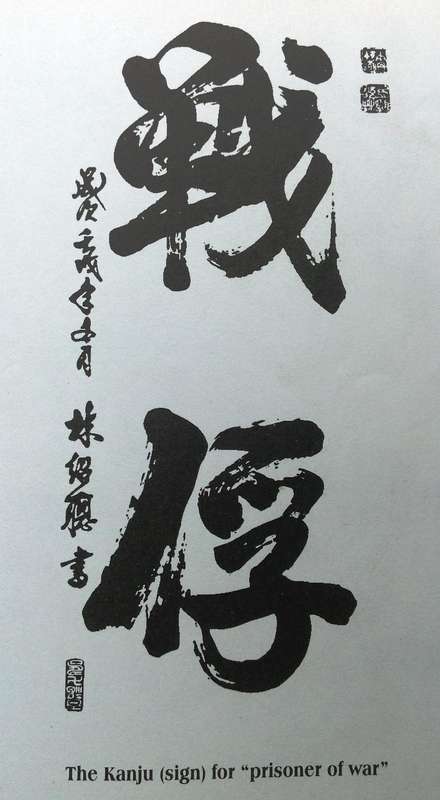 戰俘
歲次壬戌年五月 林紹聰 書
The Kanju (sign) for “prisoner of war”